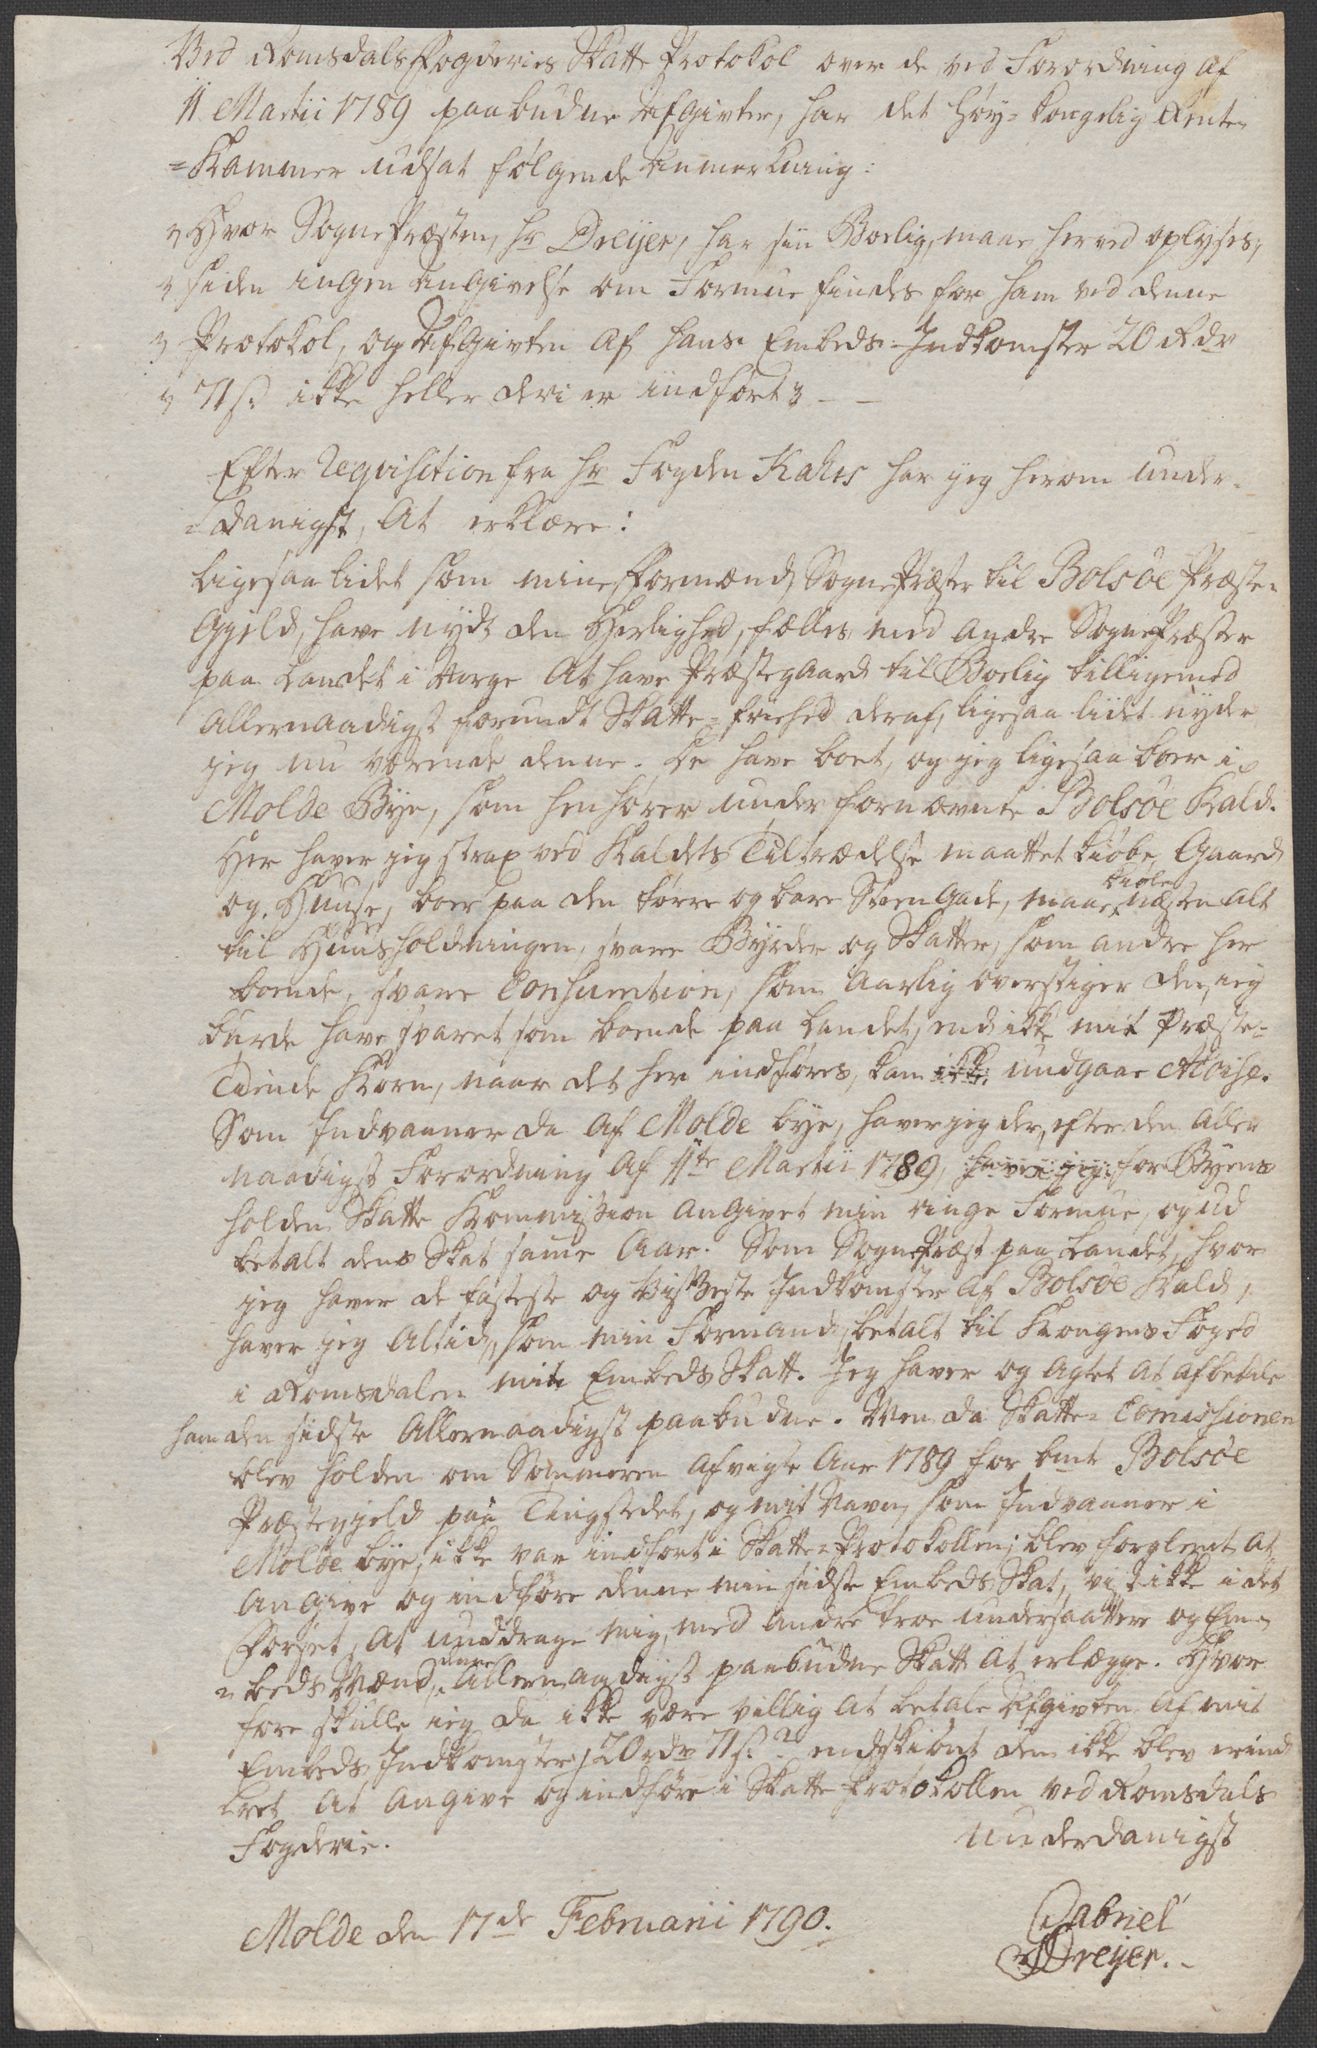 Ved Romsdals Fogderies Skatte Protokol over de ved Forordning af
11 Martii 1789 paabudne Afgivter, har det Høy-Kongelig Rente-
=Kammer udsat følgende Anmerkning:
" Hvor SognePræsten, Hr Dreyer, har sin Boelig, maae herved oplyses,
" siden ingen Angivelse om Formue findes for ham ved denne
" Protokol, og Afgivten af hans Embeds-Indkomster 20 Rdr
" 71 s: ikke heller deri er indført" - -
Efter Requisition fra Hr Fogden Kahrs har jeg herom under-
=danigst, At erklære:
Ligesaalidet som mine Formænd, SognePræster til Bolsøe Præste-
Gjeld, have nydt den Herlighed, fælles med andre SognePræster
paa Landet i Norge At have Præstegaard til Boelig tilligemed
Allernaadigst forundt Skatte-friehed deraf, ligesaa lidet nyder
jeg nu værende denne. De have boet, og jeg ligesaa boer i
Molde Bye, som henhører under fornævnte Bolsøe Kald.
Her haver jeg strax ved Kaldets Tiltrædelse maattet kiøbe Gaard
og Huuse, boer paa den tørre og bare SteenGade, maae kiøbe næsten alt
til Huusholdningen, svare Byrder og Skatter, som andre her
boende, svare Consumtion, som Aarlig overstiger den, jeg
burde have svaret som boende paa Landet, endikke mit Præste-
Tiende Korn, naar det her indføres, kan ikke undgaae Accise.
Som Indvaaner da af Molde bye, haver jeg der, efter den Aller
naadigst Forordning Af 11te Martii 1789, haver jeg for Byens
holden Skatte Kommission Angivet min ringe Formue, og ud
betalt dens Skat samme Aar. Som SognePræst paa Landet, hvor
jeg haver de fasteste og visseste Indkomster af Bolsøe Kald,
haver jeg Altid, som min Formand, betalt til Kongens Foged
i Romsdalen mit Embeds Skatt. Jeg haver og Agtet at afbetale
ham den sidste Allernaadigst paabudne. Men da Skatte-Comissionen
blev holden om Sommeren Afvigte Aar 1789 for bmt Bolsøe
Præstegjeld paa Tingstedet, og mit Navn, som Indvaaner i
Molde bye, ikke var indført i Skatte-Protokollen; blev forglemt At
Angive og indføre denne min sidste Embeds Skat, vist ikke i det
Forsæt, At unddrage mig, med andre troe undersaatter og Em-
=beds Mænd, denne Allernaadigst paabudne Skatt At erlægge. Hvor
fore skulle jeg da ikke være villig At betale Afgivten Af mit
Embeds Indkomster, 20 rdr 71 s:? endskiønt den ikke blev erind
=ret At Angive og indføre i Skatte Protokollen ved Romsdals
Fogderie.
underdanigst
Molde den 17de Februarii 1790.
Gabriel
Dreyer.